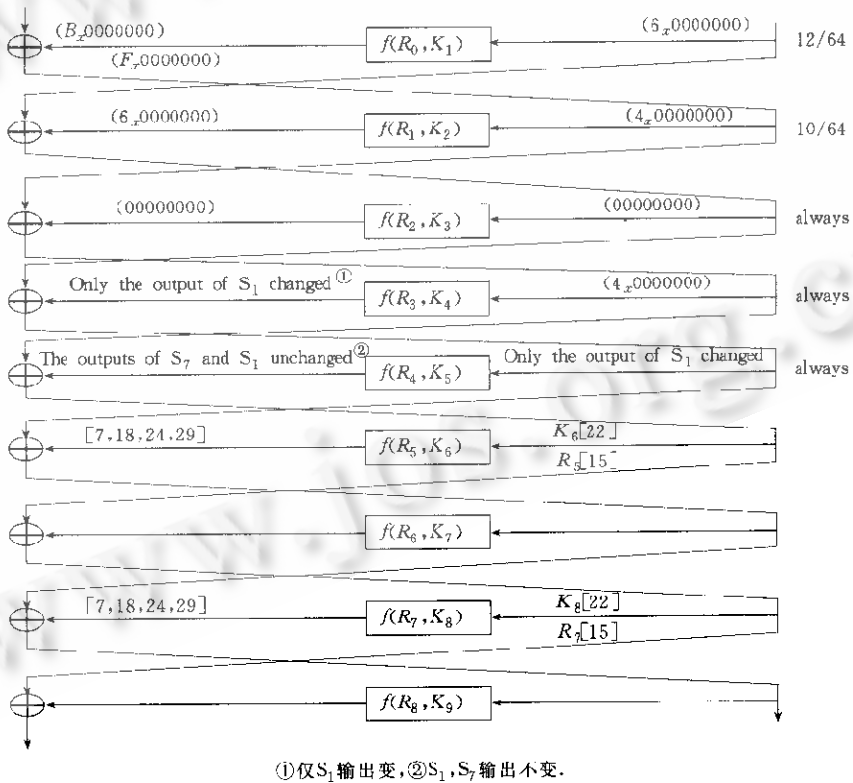 (Bₓ0000000) f(R₀,K₁) (6ₓ0000000) 12/64
(Fₓ0000000)
(6ₓ0000000) f(R₁,K₂) (4ₓ0000000) 10/64
(00000000) f(R₂,K₃) (00000000) always
Only the output of S₁ changed① f(R₃,K₄) (4ₓ0000000) always
The outputs of S₇ and S₁ unchanged② f(R₄,K₅) Only the output of S₁ changed always
[7,18,24,29] f(R₅,K₆) K₆[22]
R₅[15]
f(R₆,K₇)
[7,18,24,29] f(R₇,K₈) K₈[22]
R₇[15]
f(R₈,K₉)
①仅S₁输出变,②S₁,S₇输出不变.
www.jos.org.c